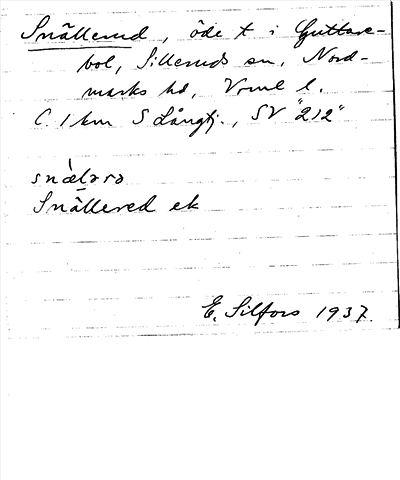 Snällerud, öde t i Guttane-
bol, Silleruds sn, Nord-
marks hd, Vrml l.
C. 1 km S Långtj., SV "212"
snælərə
Snällered ek
E. Silfors 1937.